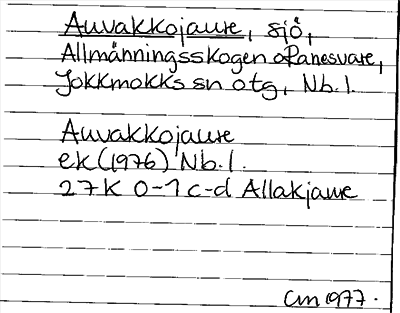 Auvakkojaure, sjö,
Allmänningsskogen o Ranesvare,
Jokkmokks sn otg, Nb. l.
Auvakkojaure
ek (1976) Nb. l.
27K 0-1 c-d Allakjaure
CM 1977.